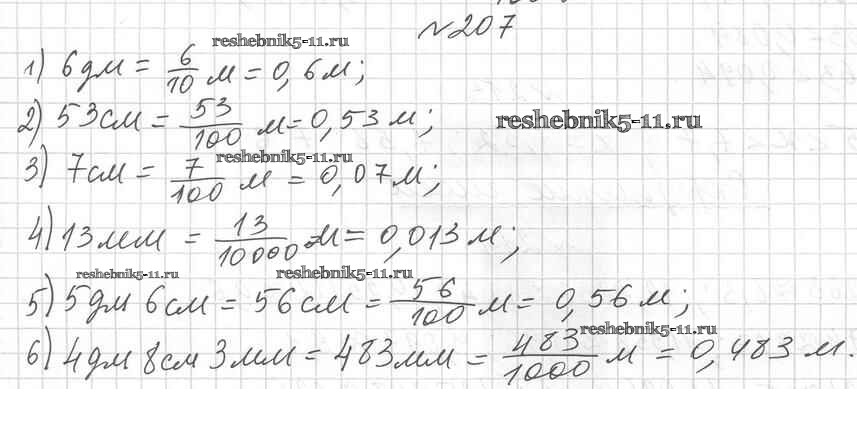 №207
reshebnik5-11.ru
1) 6дм = 6/10 м = 0,6м;
2) 53см = 53/100 м = 0,53 м;
reshebnik5-11.ru
reshebnik5-11.ru
3) 7см = 7/100 м = 0,07м;
4) 13мм = 13/10000 м = 0,013 м;
reshebnik5-11.ru
reshebnik5-11.ru
5) 5дм 6см = 56см = 56/100 м = 0,56м;
reshebnik5-11.ru
6) 4дм 8см 3мм = 483мм = 483/1000 м = 0,483 м.